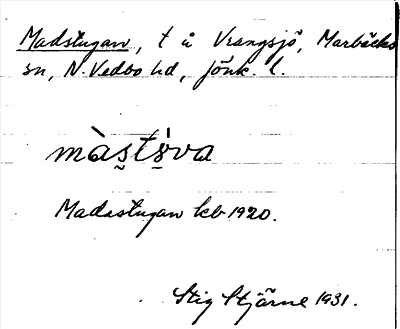 Madstugan, t å Vrangsjö, Marbäcks
sn, N. Vedbo hd, Jönk. l.
màs̬tò̤va
Madastugan kb 1920.
Stig Stjärne 1931.